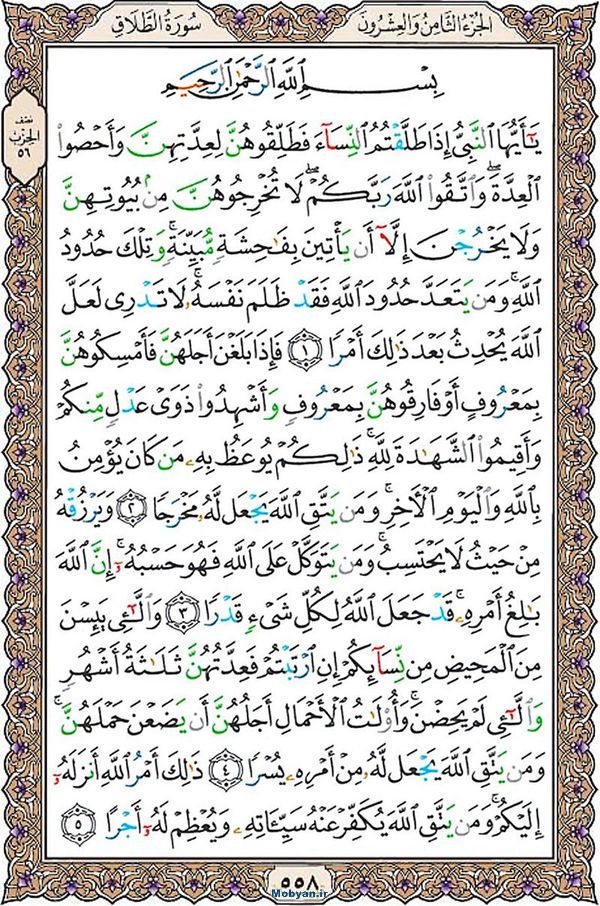 الجزء الثامن والعشرون
سورة الطلاق
نصف
الحزب
٥٦
بِسْمِ ٱللَّهِ ٱلرَّحْمَٰنِ ٱلرَّحِيمِ
يَٰٓأَيُّهَا ٱلنَّبِىُّ إِذَا طَلَّقْتُمُ ٱلنِّسَآءَ فَطَلِّقُوهُنَّ لِعِدَّتِهِنَّ وَأَحْصُوا۟
ٱلْعِدَّةَ ۖ وَٱتَّقُوا۟ ٱللَّهَ رَبَّكُمْ ۖ لَا تُخْرِجُوهُنَّ مِنۢ بُيُوتِهِنَّ
وَلَا يَخْرُجْنَ إِلَّآ أَن يَأْتِينَ بِفَٰحِشَةٍ مُّبَيِّنَةٍ ۚ وَتِلْكَ حُدُودُ
ٱللَّهِ ۚ وَمَن يَتَعَدَّ حُدُودَ ٱللَّهِ فَقَدْ ظَلَمَ نَفْسَهُۥ ۚ لَا تَدْرِى لَعَلَّ
ٱللَّهَ يُحْدِثُ بَعْدَ ذَٰلِكَ أَمْرًا ١ فَإِذَا بَلَغْنَ أَجَلَهُنَّ فَأَمْسِكُوهُنَّ
بِمَعْرُوفٍ أَوْ فَارِقُوهُنَّ بِمَعْرُوفٍ وَأَشْهِدُوا۟ ذَوَىْ عَدْلٍ مِّنكُمْ
وَأَقِيمُوا۟ ٱلشَّهَٰدَةَ لِلَّهِ ۚ ذَٰلِكُمْ يُوعَظُ بِهِۦ مَن كَانَ يُؤْمِنُ
بِٱللَّهِ وَٱلْيَوْمِ ٱلْأَخِرِ ۚ وَمَن يَتَّقِ ٱللَّهَ يَجْعَل لَّهُۥ مَخْرَجًا ٢ وَيَرْزُقْهُ
مِنْ حَيْثُ لَا يَحْتَسِبُ ۚ وَمَن يَتَوَكَّلْ عَلَى ٱللَّهِ فَهُوَ حَسْبُهُۥٓ ۚ إِنَّ ٱللَّهَ
بَٰلِغُ أَمْرِهِۦ ۚ قَدْ جَعَلَ ٱللَّهُ لِكُلِّ شَىْءٍ قَدْرًا ٣ وَٱلَّٰٓـِٔى يَئِسْنَ
مِنَ ٱلْمَحِيضِ مِن نِّسَآئِكُمْ إِنِ ٱرْتَبْتُمْ فَعِدَّتُهُنَّ ثَلَٰثَةُ أَشْهُرٍ
وَٱلَّٰٓـِٔى لَمْ يَحِضْنَ ۚ وَأُو۟لَٰتُ ٱلْأَحْمَالِ أَجَلُهُنَّ أَن يَضَعْنَ حَمْلَهُنَّ ۚ
وَمَن يَتَّقِ ٱللَّهَ يَجْعَل لَّهُۥ مِنْ أَمْرِهِۦ يُسْرًا ٤ ذَٰلِكَ أَمْرُ ٱللَّهِ أَنزَلَهُۥٓ
إِلَيْكُمْ ۚ وَمَن يَتَّقِ ٱللَّهَ يُكَفِّرْ عَنْهُ سَيِّـَٔاتِهِۦ وَيُعْظِمْ لَهُۥٓ أَجْرًا ٥
٥٥٨
Mobyan.ir